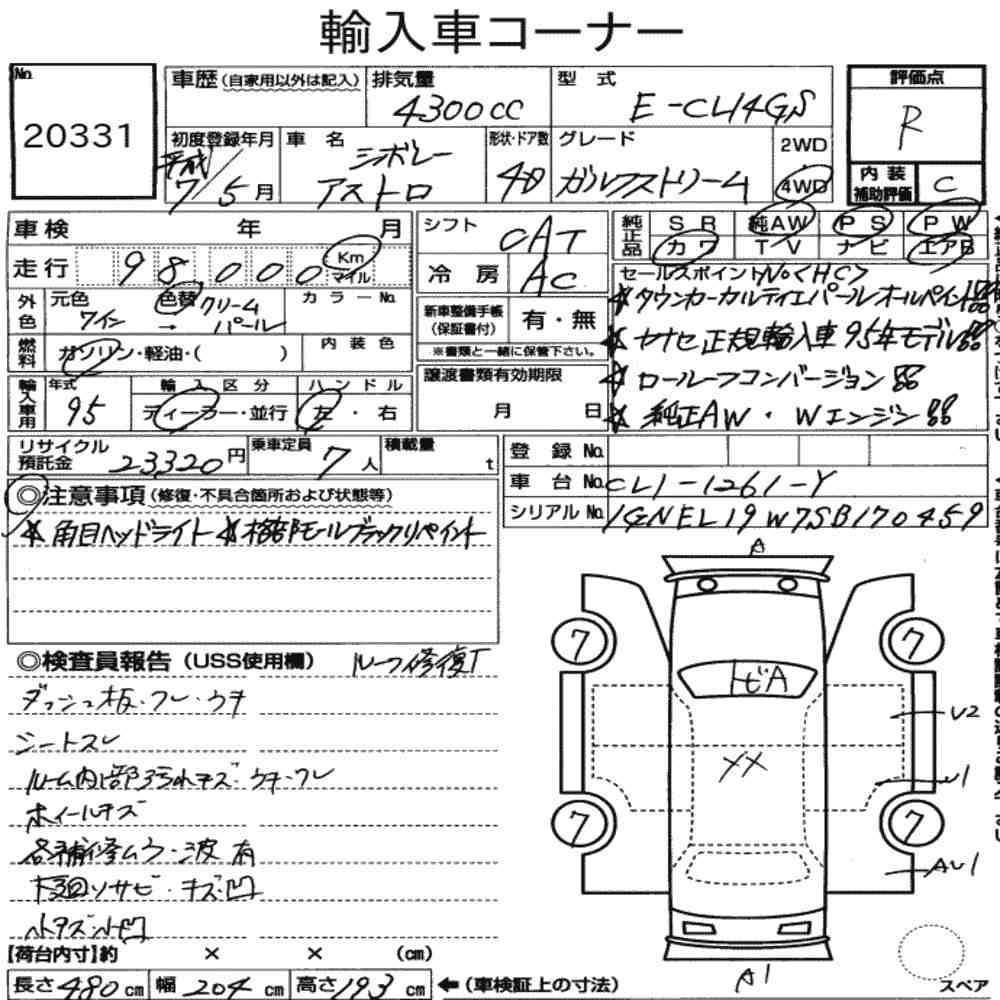 輸入車コーナー
No.
20331
車歴 (自家用以外は記入)
排気量
4300cc
型式
E-CL14GS
評価点
R
初度登録年月
平成
7/5月
車名
シボレー
アストロ
形状・ドア数
4D
グレード
ガルフストリーム
2WD
4WD
内装
補助評価
C
車検 年 月
シフト
CAT
純正品
SR 純AW PS PW
カワ TV ナビ エアB
走行 98000 Km
マイル
冷房
AC
セールスポイント No<HC>
外色
元色
ワイン
→
色替
クリーム
パール
カラーNo.
新車整備手帳
(保証書付)
有・無
※書類と一緒に保管下さい。
☆ヤナセ正規輸入車95年モデル
燃料
ガソリン・軽油・( )
内装色
☆ロールーフコンバージョン
輸入車用
年式
95
輸入区分
ディーラー・並行
ハンドル
左・右
譲渡書類有効期限
月 日
☆純正AW・Wエンジン
リサイクル
預託金
23320円
乗車定員
7人
積載量
t
登録No.
車台No. CL1-1261-Y
シリアルNo. 1GNEL19W7SB170459
◎注意事項 (修復・不具合箇所および状態等)
☆角目ヘッドライト ☆モールブラックリペイント
◎検査員報告 (USS使用欄)
ルーフ修復了
ダッシュ板・フレ・ウキ
シートスレ
ルーム内部汚れキズ・ウキ・フレ
ホイールキズ
各補修ムラ・波有
下廻りサビ・キズ凹
小キズ小凹
A
7
7
トビA
U2
XX
U1
7
7
AU1
A1
スペア
[荷台内寸]約 × × (cm)
長さ480cm 幅204cm 高さ193cm ←(車検証上の寸法)